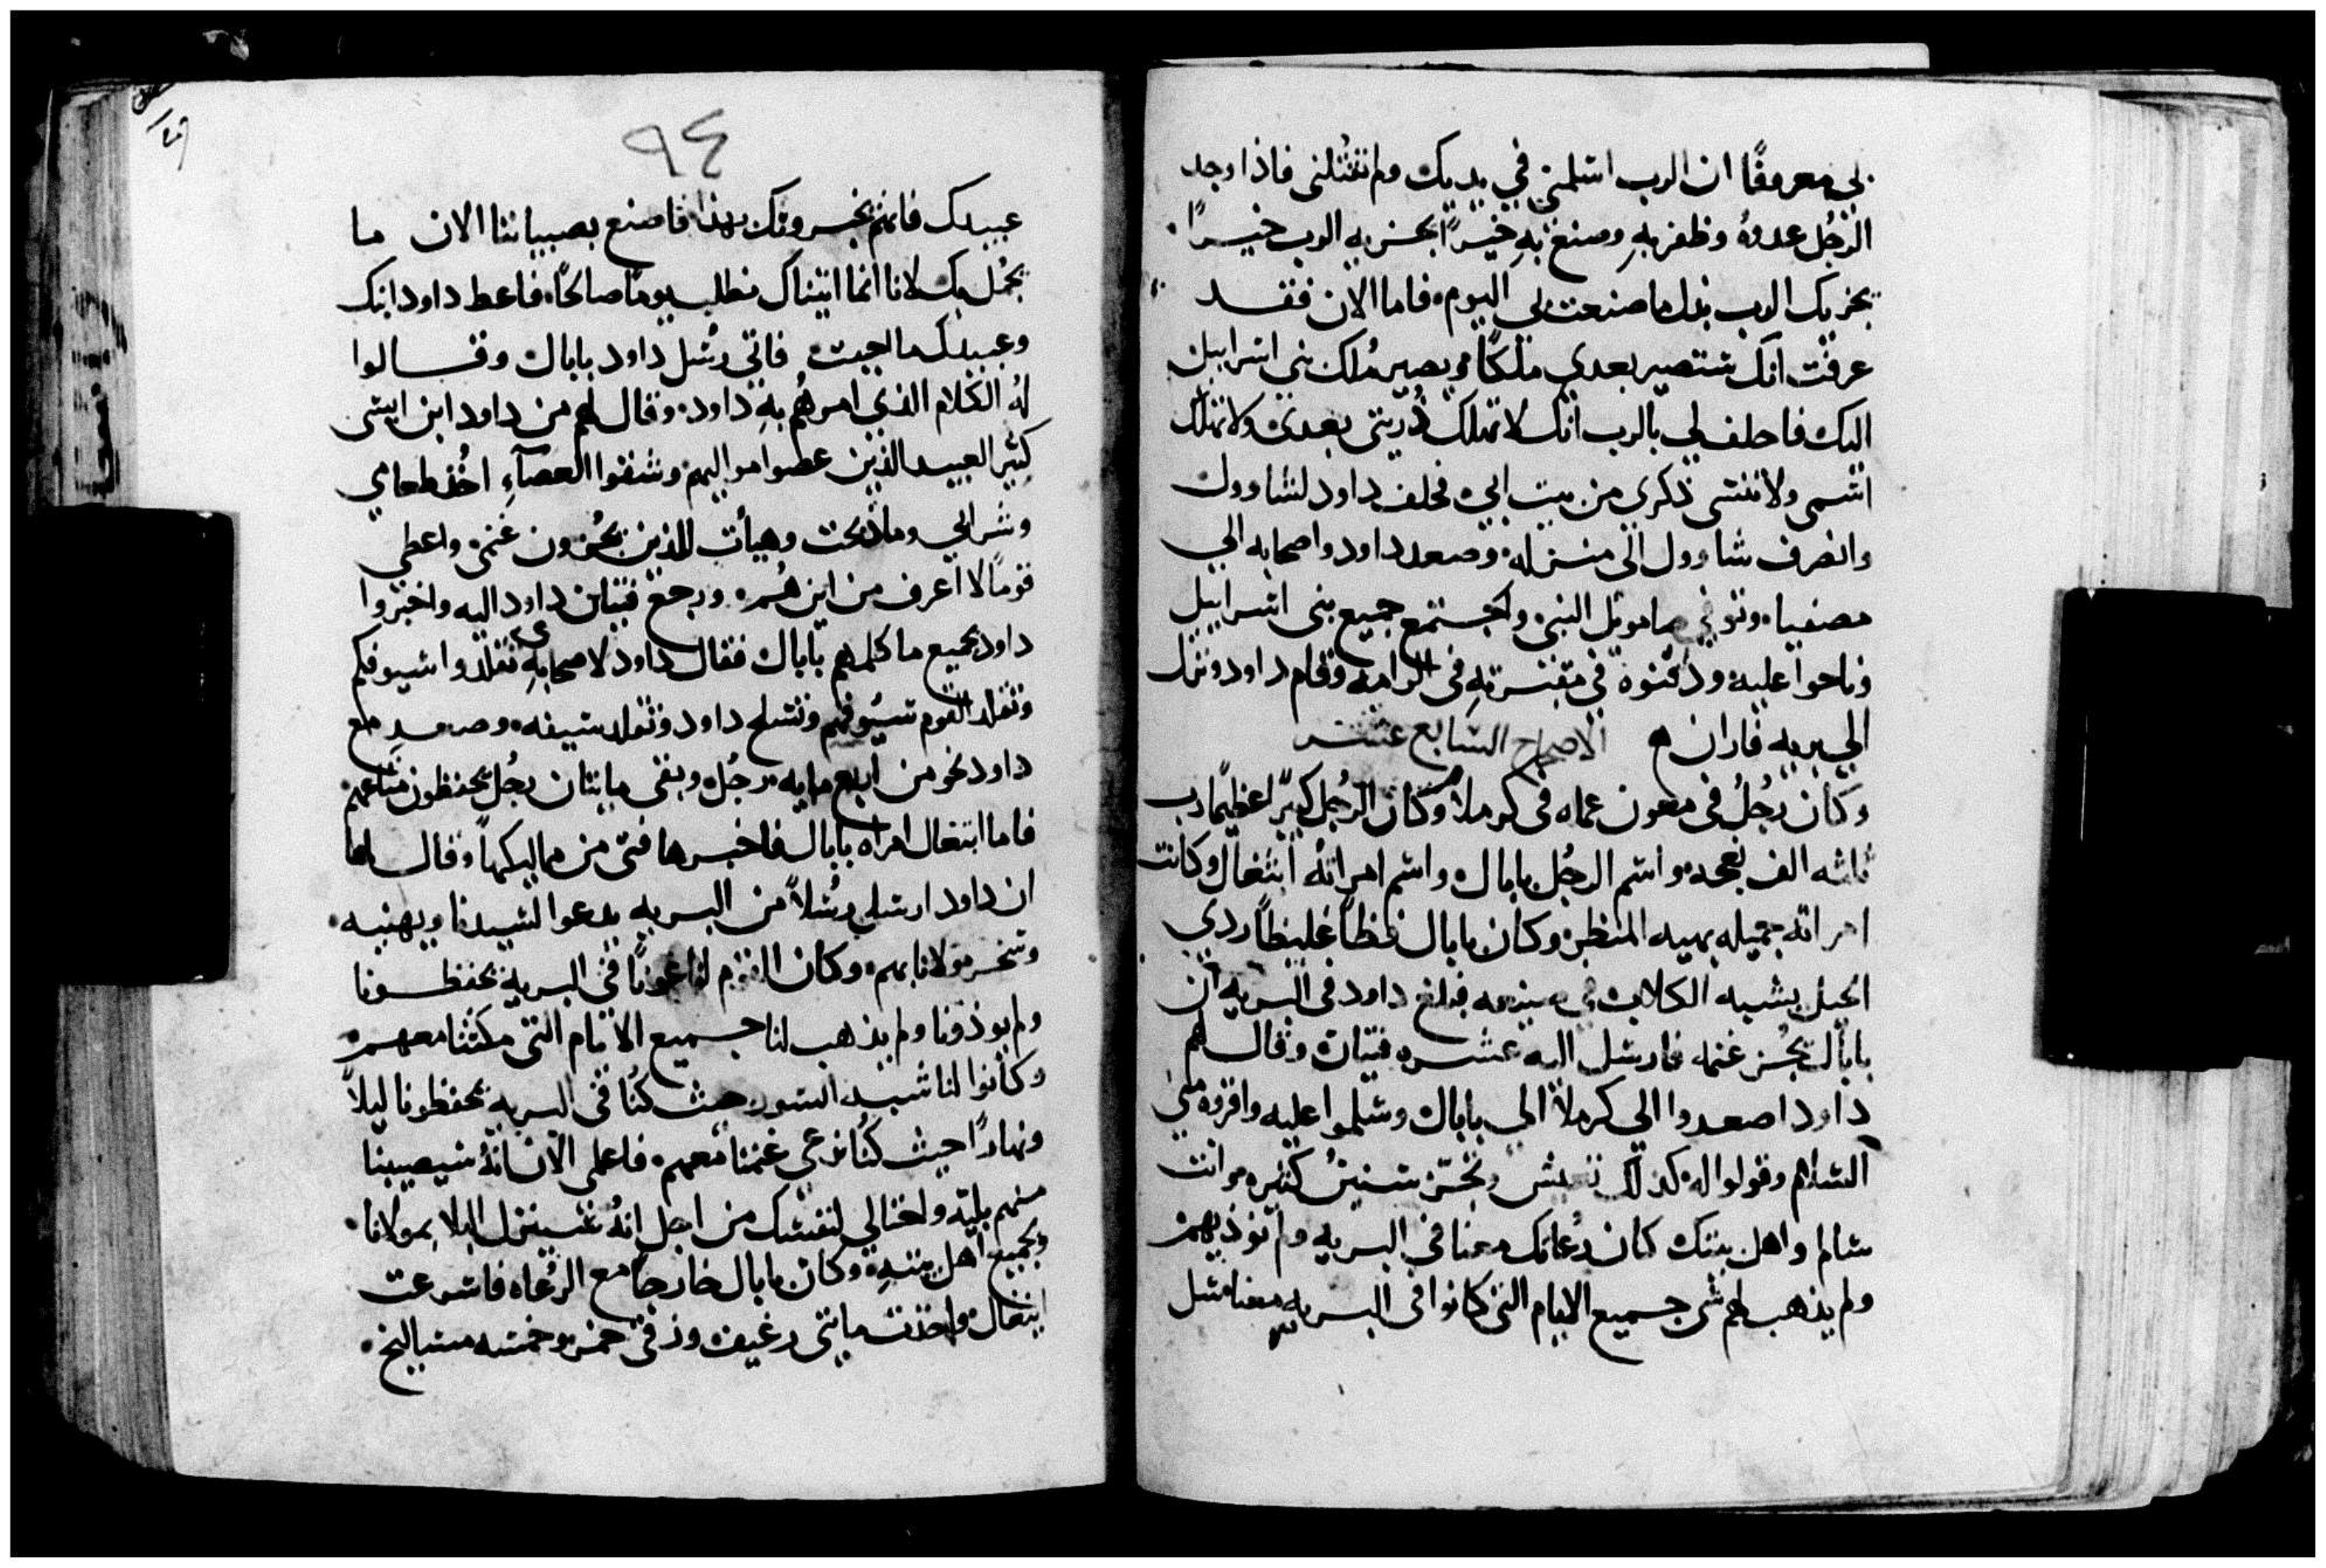 بي معروفًا ان الرب اسلمني في يديك ولم تقتُلني فاذا وجد
الرجُل عدوهُ وظفر بهِ وصنع بهِ خيرًا يجزيه الرب خيرًا
يجزيك الرب بدل ما صنعت لي اليوم فاما الان فقد
عرفت انك ستصير بعدي ملكًا ويصير مُلك بني اسراييل
اليك فاحلف لي بالرب انك لا تهلك ذُريتي بعدي ولا تهلك
اسمي ولا تنسى ذكري من بيت ابي فحلف داود لشاوول
وانصرف شاوول الى منزله وصعد داود واصحابه الي
مصفيا وتوفي صامويل النبي واجتمع جميع بني اسراييل
وناحوا عليه ودفنوه في مقبرتهِ في الرامه وقام داود ونزل
الي بريه فاران الاصحاح السابع عشر
وكان رجُلٌ في معون عماه في كرملا وكان الرجُل كبيرًا عظيمًا رب
ثلثه الف نعجه واسم الرجُل بابال واسم امراتهُ ابيغال وكانت
امراته جميله بهيه المنظر وكان بابال فظًا غليظًا ردي
الحيل يشبه الكلاب في فبلغ داود في البريه ان
بابال يجُز غنمه فارسل اليه عشره فتيان وقال لهم
داود اصعدوا الي كرملا الي بابال وسلموا عليه واقروه مني
السلام وقولوا له كذلك تعيش سنين كثيره وانت
سالم واهل بيتك كان رُعاتك معنا في البريه ولم نوذيهم
ولم يذهب لهم شي جميع الايام التي كانوا في البريه معنا سل
٩٤
عبيدك فانهم يخبرونك بهذا فاصنع بصبياننا الان ما
يجمُل بك لاننا انما اتيناك نطلب يومًا صالحًا فاعط داود ابنك
وعبيدك ما احببت فاتي رُسل داود بابال وقالوا
لهُ الكلام الذي امرهُم بهِ داود وقال لهم من داود ابن ايسى
كثير العبيد الذين عصوا مواليهم وشقوا العصاءِ اخُذ طعامي
وشرابي وما ذبحت وهيات للذين يجُزون غنمي واعطي
قومًا لا اعرف من اين هُم ورجع فتيان داود اليه واخبروا
داود بجميع ما كلمهم بابال فقال داود لاصحابهِ تقلدوا سيوفكم
وتقلد القوم سيُوفهم وتسلح داود وتقلد سيفه وصعد مع
داود نحو من اربع مايه رجُل وبقى مايتان رجُل يحفظون متاعهم
فاما ابيغال امراه بابال فاخبرها فتى من مماليكها وقال لها
ان داود ارسل رسُلاً من البريه يدعوا لسيدنا ويهنيه
وتسخر مولانا بهم وكان القوم لنا عونًا في البريه يحفظونا
ولم يوذونا ولم يذهب لنا جميع الايام التي مكثنا معهم
وكانوا لنا شبه السور حيث كنُا في البريه يحفظونا ليلاً
ونهارًا حيث كنُا نرعي غنمنا معهم فاعلمي الان انهُ سيصيبنا
منهم بليه واحتالي لنفسك من اجل انهُ سينزل البلا بمولانا
وبجميع اهل بيتهِ وكان بابال خارجًا مع الرُعاه فاسرعت
ابيغال واخذت مايتي رغيف وزقي خمر وخمسه